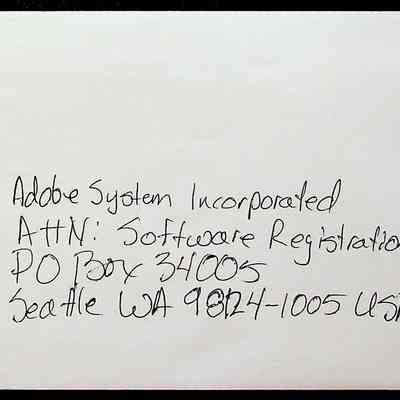 Adobe System Incorporated
ATTN: Software Registratio
PO Box 34005
Seattle WA 98124-1005 USA